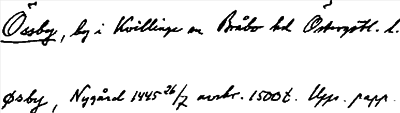 Össby, by i Kvillinge sn Bråbo hd Östergötl. l.
Øsby, Nygård 1445 26/7 avskr. 1500t. Upps. papp.